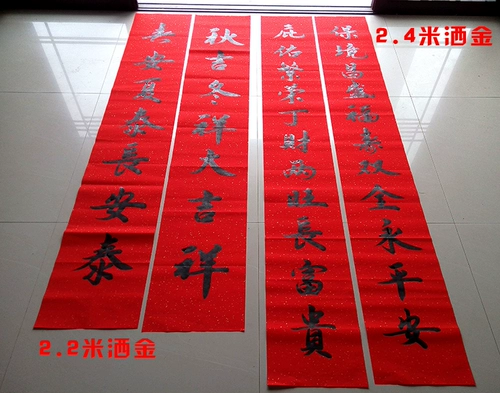 2.4米洒金
保境昌盛福寿双全永平安
庇佑繁荣丁財兩旺長富貴
秋吉冬祥大吉祥
春安夏泰長安泰
2.2米洒金